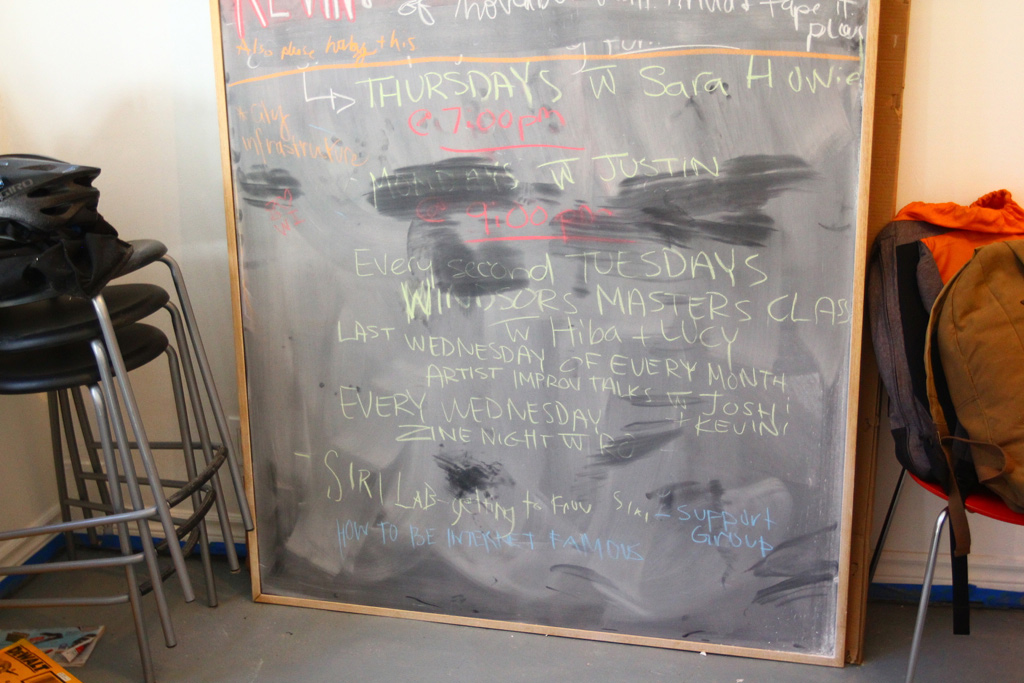 KEVIN
Also please
THURSDAYS W Sara Howie
@ 7:00 pm
* City
infrastructure
MONDAYS W JUSTIN
@ 9:00 pm
Every second TUESDAYS
WINDSORS MASTERS CLASS
W Hiba + LUCY
LAST WEDNESDAY OF EVERY MONTH
ARTIST IMPROV TALKS W JOSH
+ KEVIN!
EVERY WEDNESDAY
ZINE NIGHT W
- SIRI LAB - getting to know Siri - Support
Group
HOW TO BE INTERNET FAMOUS
DEWALT